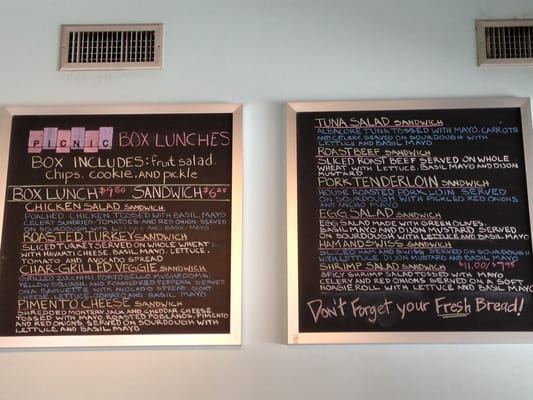 PICNIC BOX LUNCHES
BOX INCLUDES: fruit salad.
chips, cookie, and pickle
BOX LUNCH $9.50 SANDWICH $6.50
CHICKEN SALAD SANDWICH
POACHED CHICKEN TOSSED WITH BASIL MAYO
CELERY SUNDRIED-TOMATOES AND RED ONION SERVED
ON SOURDOUGH WITH LETTUCE AND BASIL MAYO
ROASTED TURKEY SANDWICH
SLICED TURKEY SERVED ON WHOLE WHEAT
WITH HAVARTI CHEESE, BASIL MAYO, LETTUCE,
TOMATO AND AVOCADO SPREAD
CHAR-GRILLED VEGGIE SANDWICH
GRILLED ZUCCHINI, PORTOBELLO MUSHROOMS
YELLOW SQUASH AND ROASTED RED PEPPERS SERVED
ON A BAGUETTE WITH AVOCADO SPREAD, GOAT
CHEESE, LETTUCE, TOMATO AND BASIL MAYO
PIMENTO CHEESE SANDWICH
SHREDDED MONTEREY JACK AND CHEDDAR CHEESE
TOSSED WITH MAYO, ROASTED POBLANOS, PIMENTO
AND RED ONIONS SERVED ON SOURDOUGH WITH
LETTUCE AND BASIL MAYO
TUNA SALAD SANDWICH
ALBACORE TUNA TOSSED WITH MAYO, CARROTS
AND CELERY. SERVED ON SOURDOUGH WITH
LETTUCE AND BASIL MAYO
ROAST BEEF SANDWICH
SLICED ROAST BEEF SERVED ON WHOLE
WHEAT WITH LETTUCE, BASIL MAYO AND DIJON
MUSTARD
PORK TENDERLOIN SANDWICH
HOUSE ROASTED PORK LOIN SERVED
ON SOURDOUGH WITH PICKLED RED ONIONS
AND ANCHO MAYO
EGG SALAD SANDWICH
EGG SALAD MADE WITH GREEN OLIVES,
BASIL MAYO AND DIJON MUSTARD SERVED
ON SOURDOUGH WITH LETTUCE AND BASIL MAYO
HAM AND SWISS SANDWICH
SLICED HAM AND SWISS SERVED ON SOURDOUGH
WITH LETTUCE, DIJON MUSTARD AND BASIL MAYO
SHRIMP SALAD SANDWICH $11.00/$7.95
SPICY SHRIMP SALAD TOSSED WITH MAYO
CELERY AND RED ONIONS SERVED ON A SOFT
HOAGIE ROLL WITH LETTUCE AND BASIL MAYO
Don't Forget your Fresh Bread!